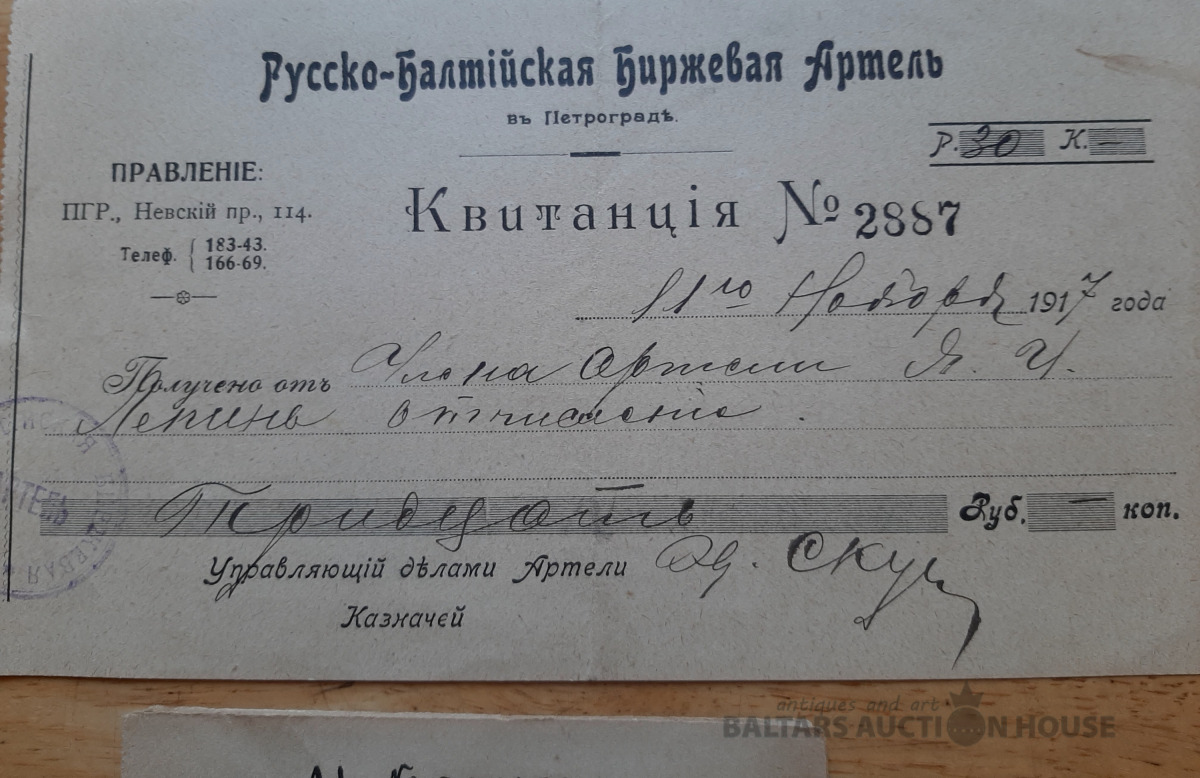 Русско-Балтійская Биржевая Артель
въ Петроградѣ.
Р. 30 К. —
ПРАВЛЕНІЕ:
ПГР., Невскій пр., 114.
Телеф. { 183-43.
166-69.
Квитанція № 2887
11го Ноября 1917 года
Получено отъ Члена Артели Я. И.
Лепинь отчисленіе.
Тридцать Руб. — коп.
Управляющій дѣлами Артели
Казначей
antiques and art
BALTARS AUCTION HOUSE